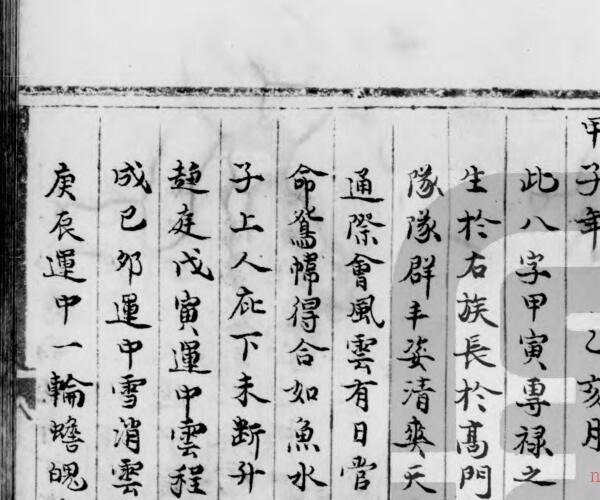 甲子年 乙亥月
此八字甲寅專祿之
生於右族長於高門
隊隊群丰姿清爽天
通際會風雲有日當
命鴛幃得合如魚水
子上人庇下未斷升
趨庭戊寅運中雲程
成己卯運中雪消雲
庚辰運中一輪蟾魄